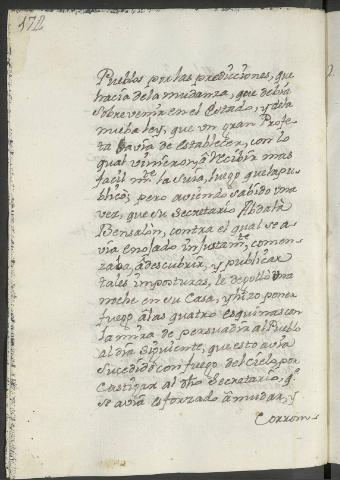 172
Pueblos por las predicciones, que
hacia de la mudanza, que debia
sobrevenir en el Estado, y de la
nueba ley, que un gran Profe-
ta avia de establecer, con lo
qual vinieron, a recibir mas
facil mte la Suia, luego que la pu-
blicó; pero aviendo sabido una
vez, que su Secretario Abdalà
Bensalòn, contra el qual se a-
via enojado injustamte, comen-
zaba, a descubrir, y publicar
tales imposturas, le degolló una
noche en su Casa, y hizo poner
fuego à las quatro esquinas con
la mira de persuadir al Pueblo
al dia siguiente, que esto avia
sucedido con fuego del Cielo, por
castigar al dho Secretario, q.e
se avia esforzado à mudar, y
Corrom-